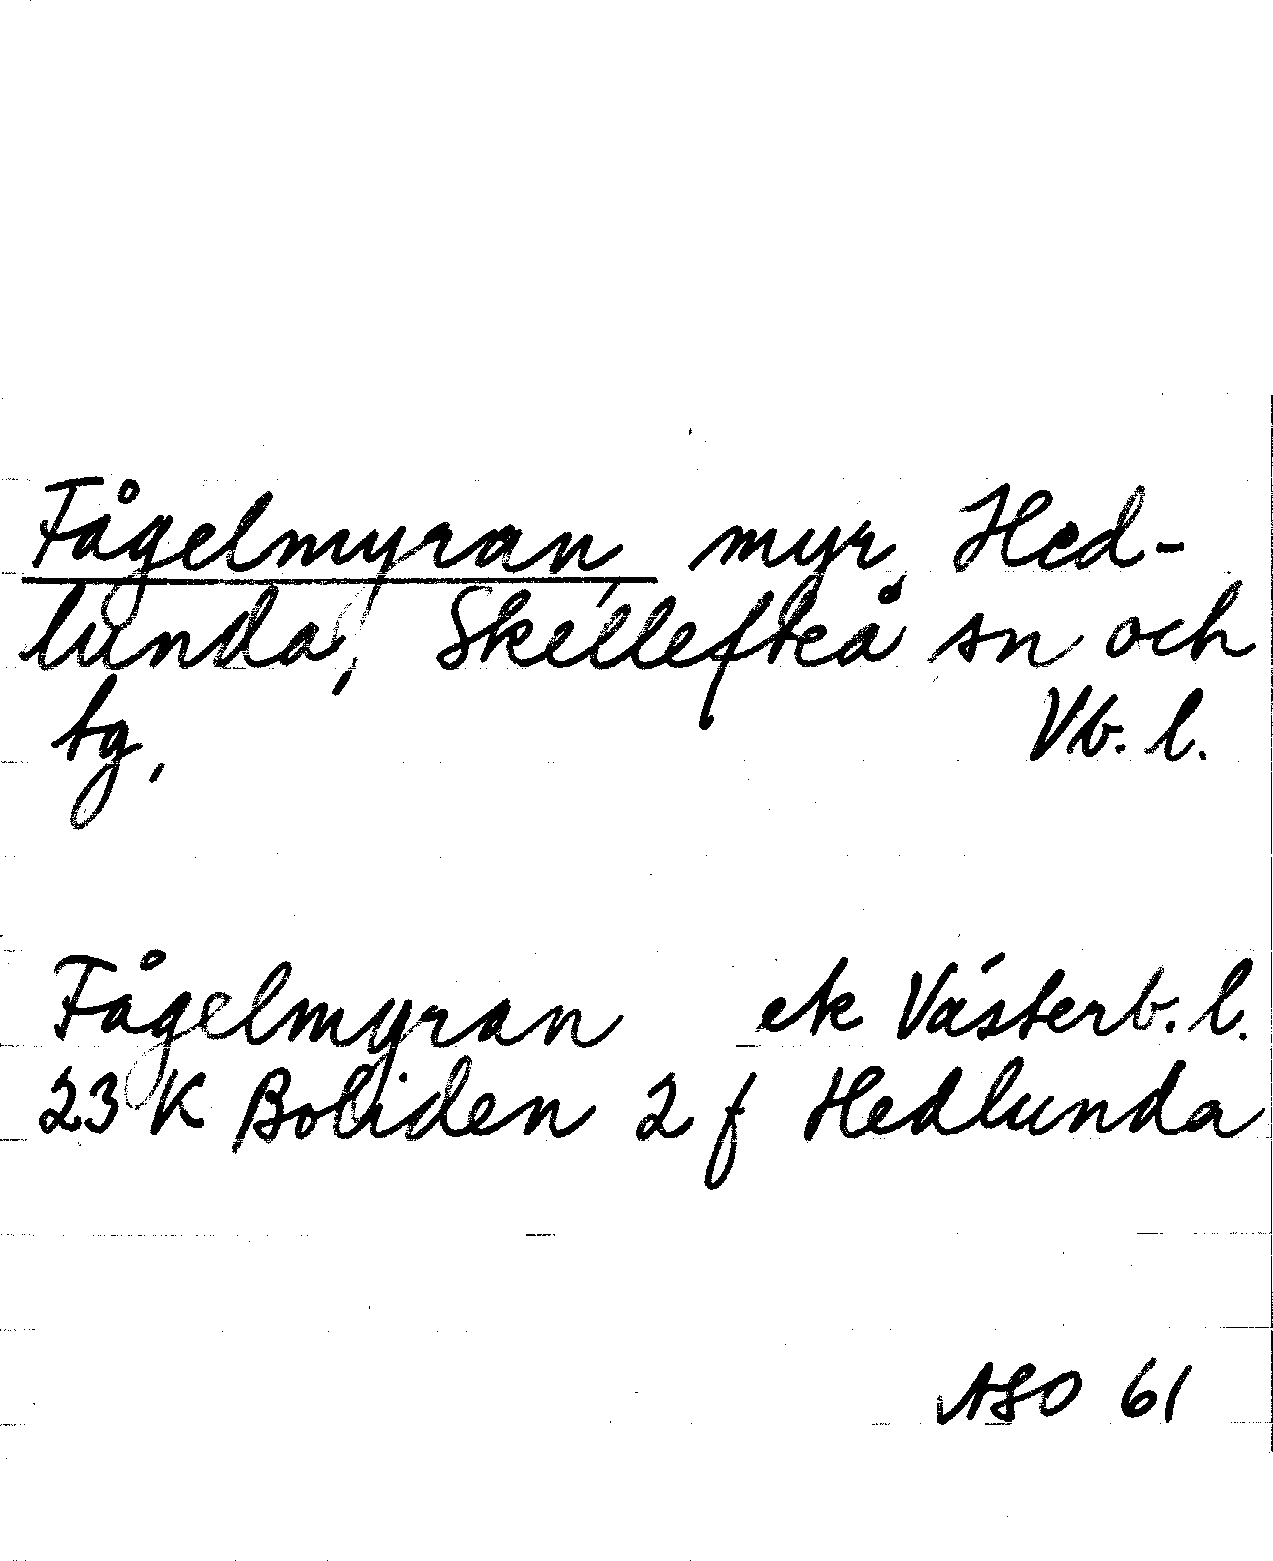 Fågelmyran, myr, Hed-
lunda, Skellefteå sn och
tg, Vb. l.
Fågelmyran ek Västerb. l.
23 K Boliden 2 f Hedlunda
ASO 61